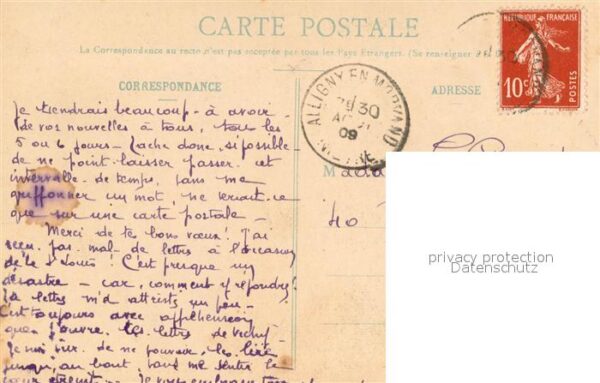 CARTE POSTALE
La Correspondance au recto n'est pas acceptée par tous les Pays Etrangers. (Se renseigner
RÉPUBLIQUE FRANÇAISE
10c
POSTES
CORRESPONDANCE
ADRESSE
ALLIGNY EN MORVAND
30
09
NIÈVRE
Je tiendrais beaucoup à avoir
de vos nouvelles à tous, tous les
5 ou 6 jours - Tache donc, si possible
de ne point laisser passer cet
intervalle de temps, sans me
griffonner un mot, ne serait-ce
que sur une carte postale -
Merci de tes bons vœux ! J'ai
reçu pas mal de lettres à l'occasion
de la St Louis ! C'est presque un
désastre - car, comment y répondre ?
Ta lettre m'a attristé un peu -
C'est toujours avec appréhension
que j'ouvre les lettres de Vichy -
Je suis sûr de ne pouvoir les lire
jusqu'au bout, sans me sentir le
cœur étreint - Je vous embrasse tous
Mada
40
privacy protection
Datenschutz